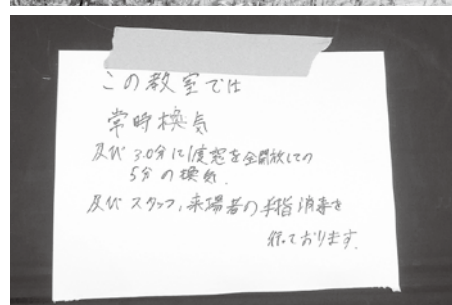 この教室では
常時換気
及び 30分に1度窓を全開放しての
5分の換気、
及び スタッフ、来場者の手指消毒を
行っております。